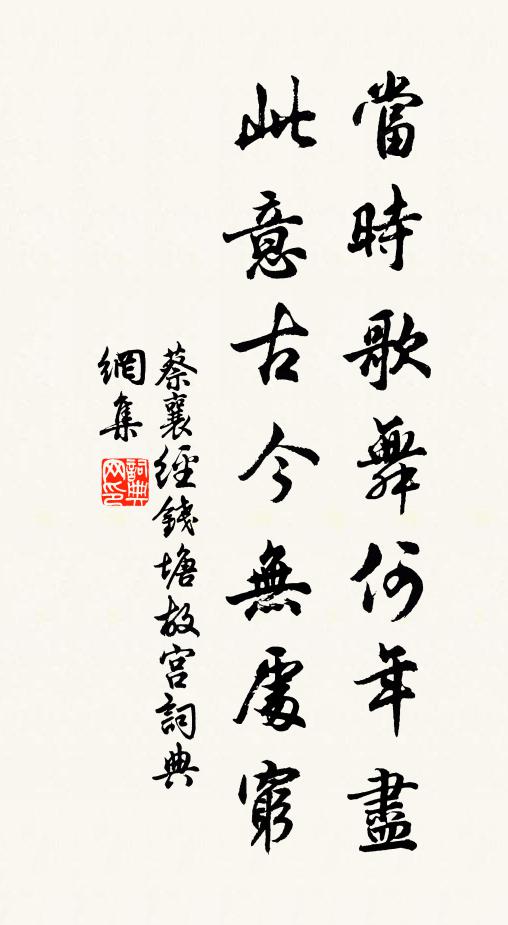 當時歌舞何年盡
此意古今無處窮
蔡襄經錢塘故宮詞典
網集
詞典網印